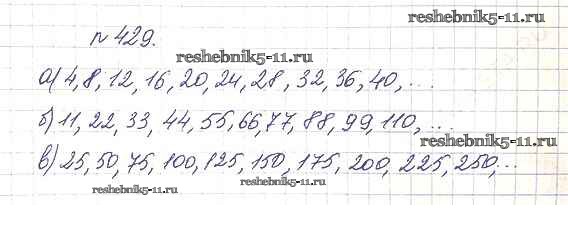 reshebnik5-11.ru
№ 429.
reshebnik5-11.ru
а) 4, 8, 12, 16, 20, 24, 28, 32, 36, 40, ...
б) 11, 22, 33, 44, 55, 66, 77, 88, 99, 110, ...
reshebnik5-11.ru
в) 25, 50, 75, 100, 125, 150, 175, 200, 225, 250, ...
reshebnik5-11.ru reshebnik5-11.ru
reshebnik5-11.ru